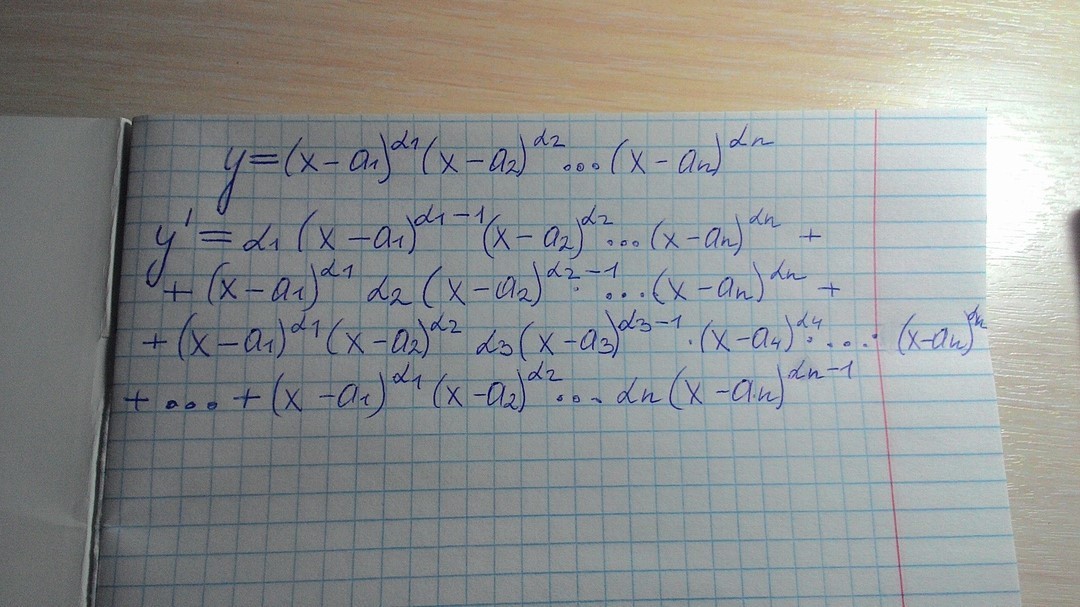 y=(x-a₁)^α₁(x-a₂)^α₂...(x-aₙ)^αₙ
y'=α₁(x-a₁)^α₁-1(x-a₂)^α₂...(x-aₙ)^αₙ+
+(x-a₁)^α₁ α₂(x-a₂)^α₂-1·...(x-aₙ)^αₙ+
+(x-a₁)^α₁(x-a₂)^α₂ α₃(x-a₃)^α₃-1·(x-a₄)^α₄·...·(x-aₙ)^αₙ
+...+(x-a₁)^α₁(x-a₂)^α₂...αₙ(x-aₙ)^αₙ-1